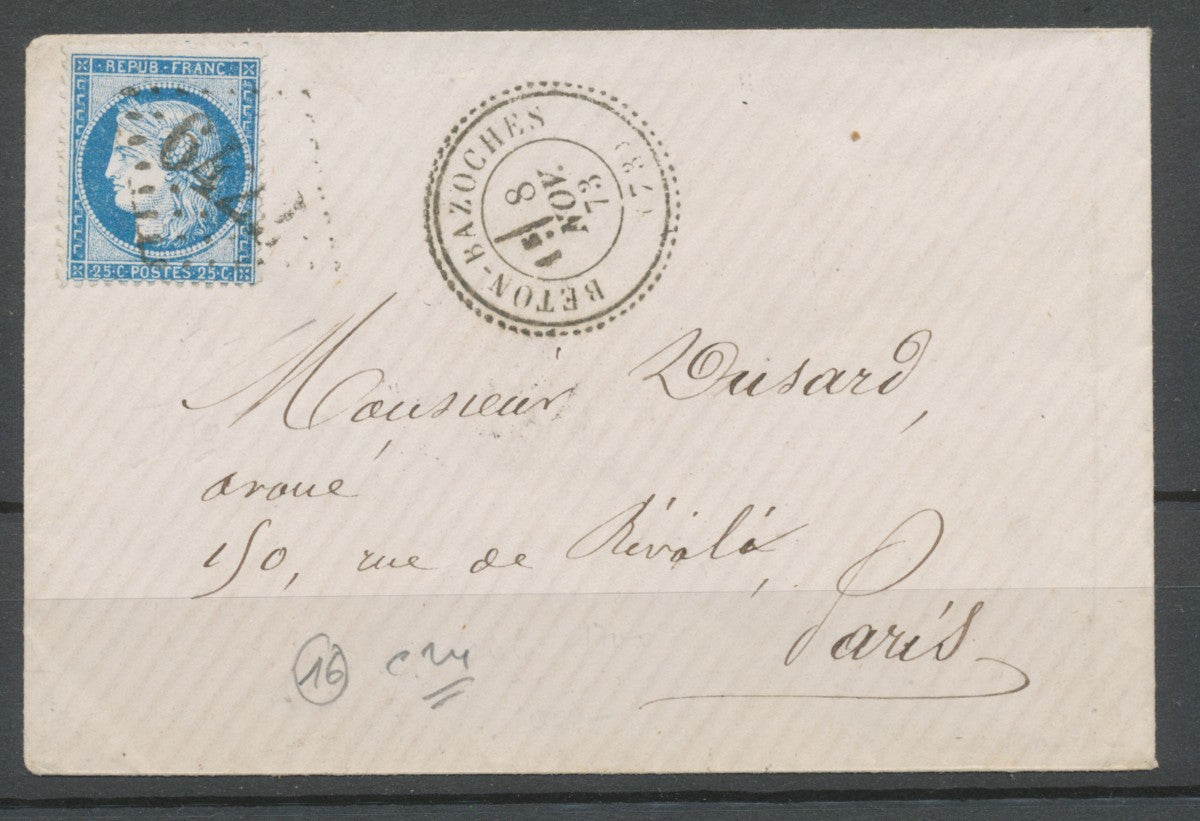 REPUB·FRANC
25·C·POSTES·25·C·
BETON-BAZOCHES (73)
8
NOV.
73
Monsieur Dusard,
avoué
150, rue de Rivoli,
Paris
16